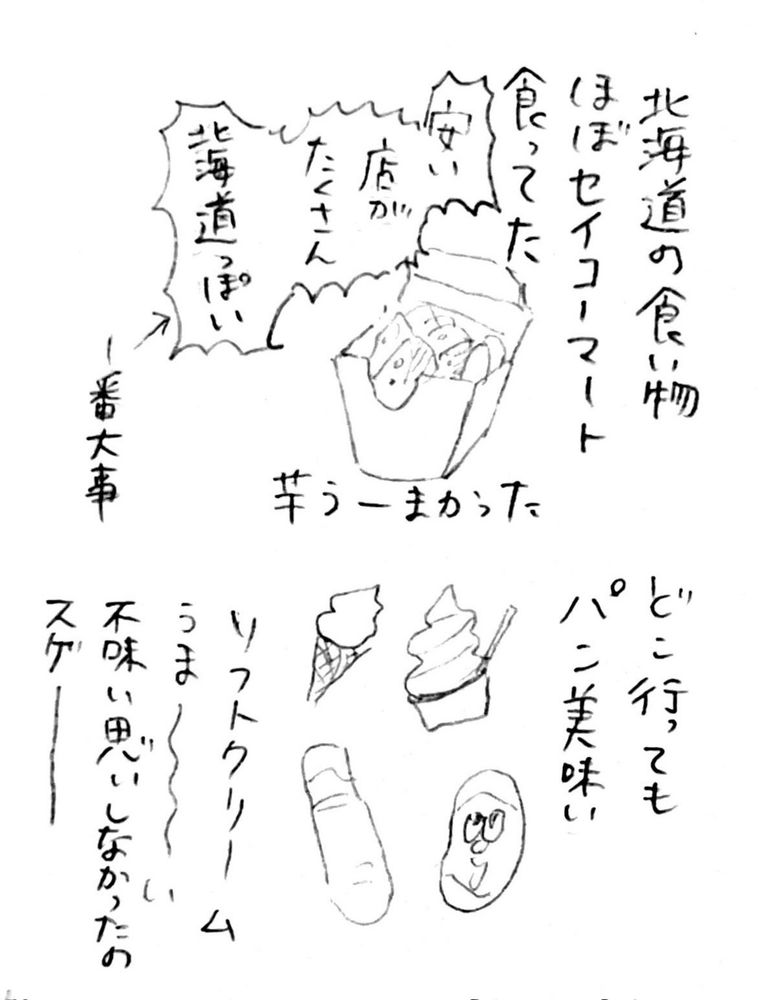 北海道の食い物
ほぼセイコーマート
食ってた
安い
店が
たくさん
北海道っぽい
一番大事
芋うーまかった
どこ行っても
パン美味い
ソフトクリーム
うま〜〜〜い
不味い思いしなかったの
スゲー